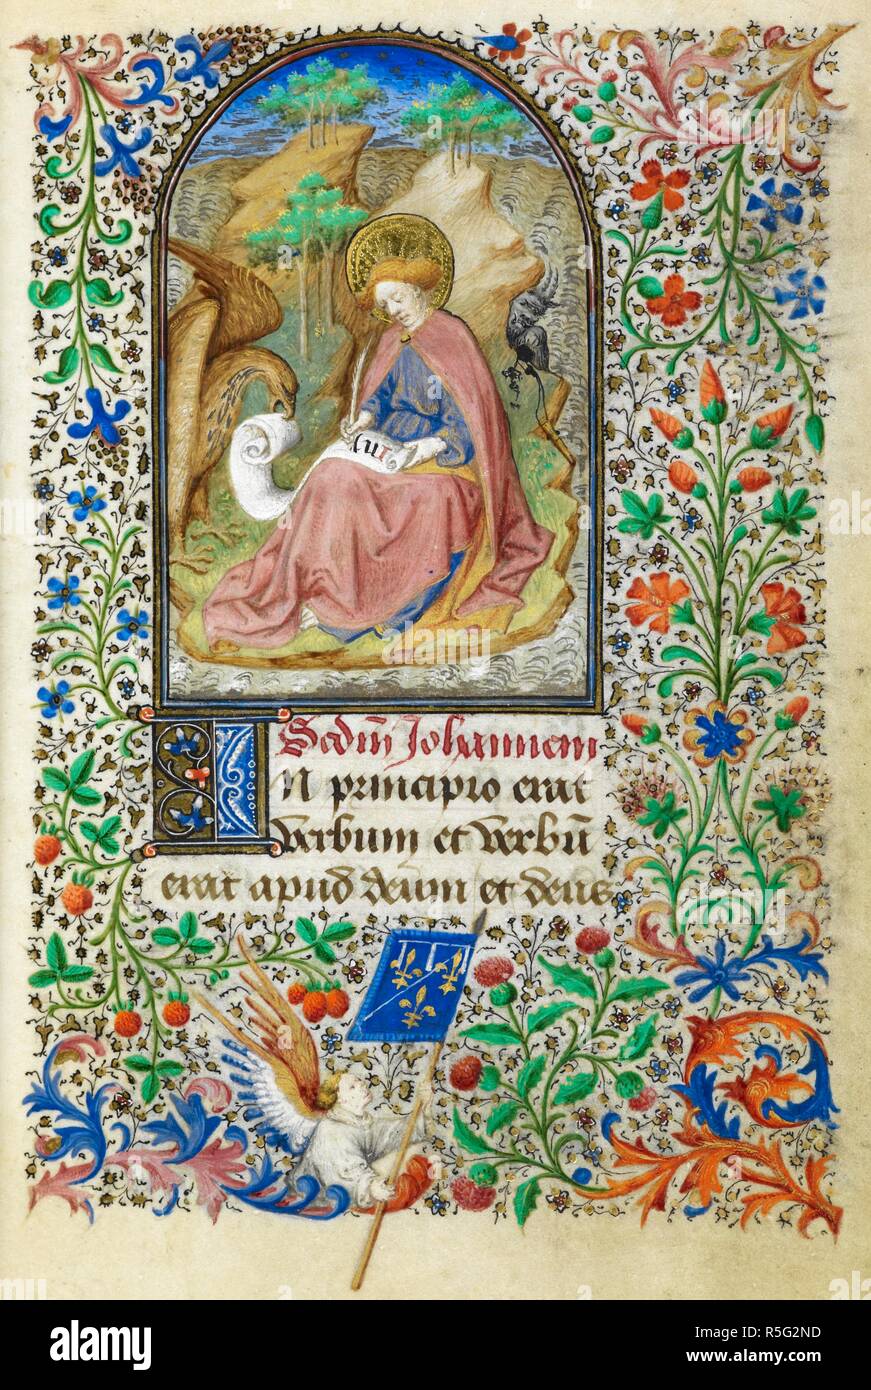 Scdm̄ Johannem
IN principio erat
verbum et verbū
erat apud deum et deus
alamy
Image ID: R5G2ND
www.alamy.com